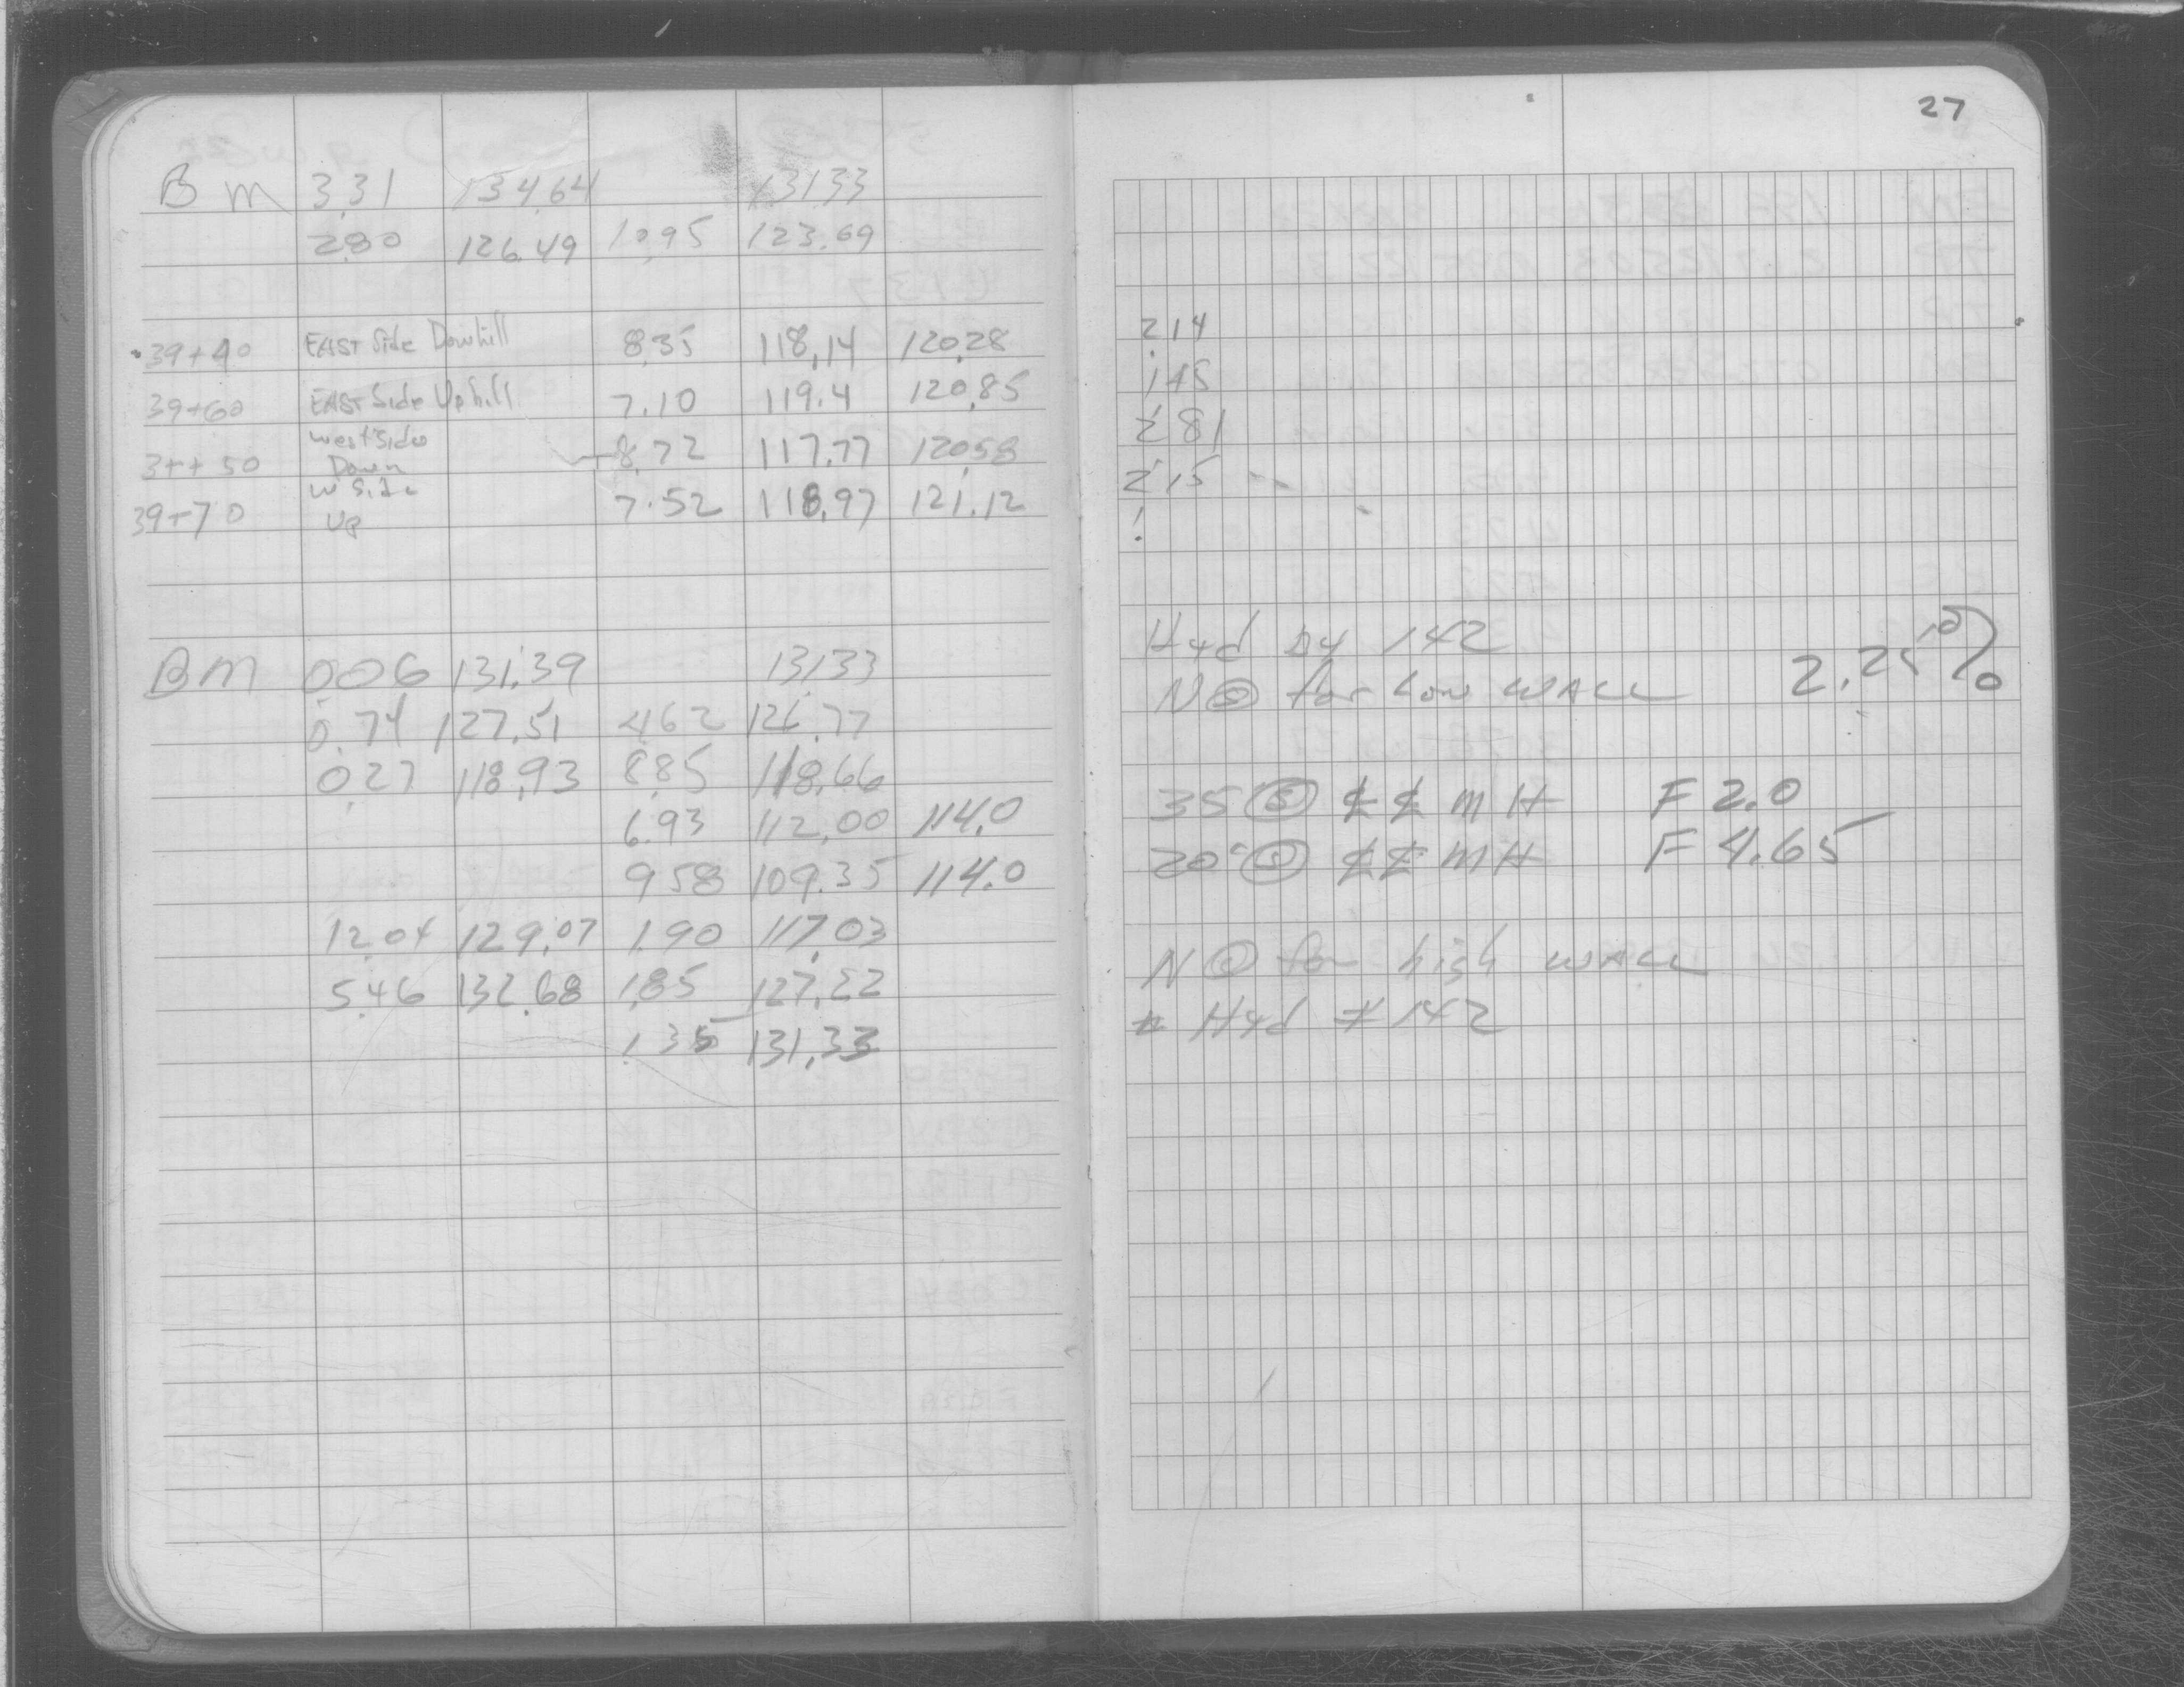 27
B M 3.31 134.64 131.33
2.80 126.49 10.95 123.69
39+40 EAST Side Downhill 8.35 118.14 120.28 2.14
39+60 EAST Side Uphill 7.10 119.4 120.85 1.45
3++50 West Side Down 8.72 117.77 120.58 2.81
39+70 W Side Up 7.52 118.97 121.12 2.15
B M 0.06 131.39 131.33
0.74 127.51 4.62 126.77
0.27 118.93 8.85 118.66
6.93 112.00 114.0
9.58 109.35 114.0
12.04 129.07 1.90 117.03
5.46 132.68 1.85 127.22
1.35 131.33
Hyd by 142
N Ⓢ for low WALL 2.25%
35 Ⓢ ℄ ℄ M H F 2.0
20' Ⓢ ℄ ℄ M H F 4.65
N Ⓢ for high WALL
Hyd # 142